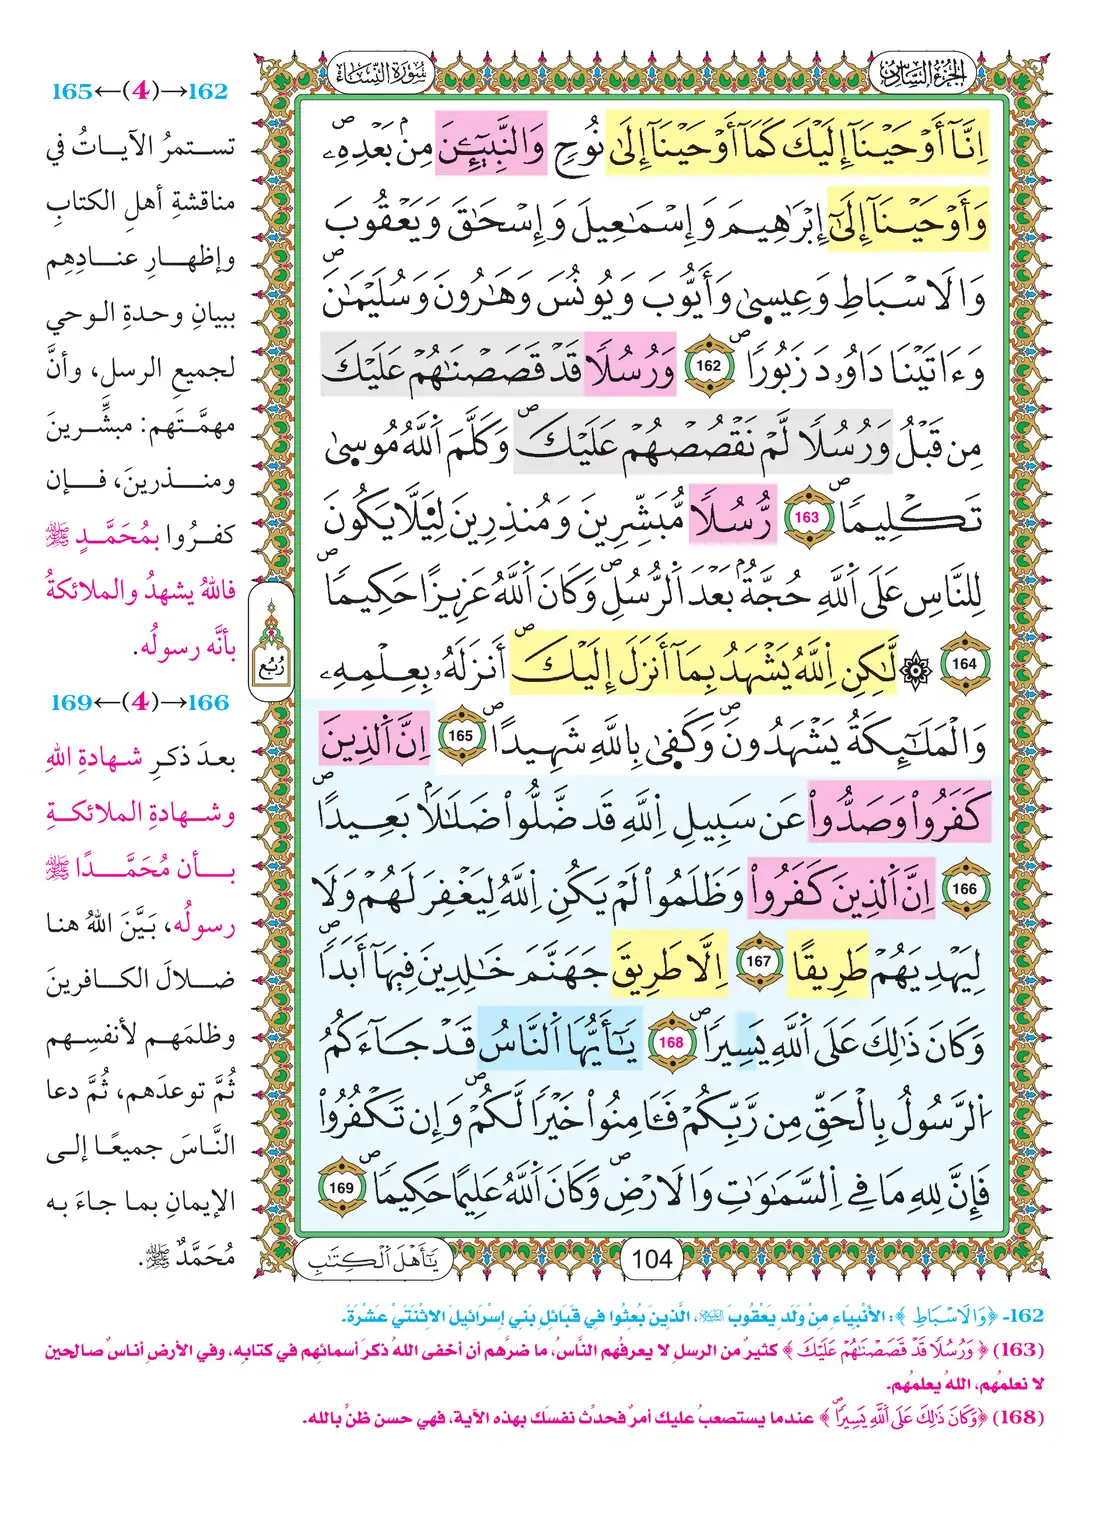 الجزء السادس
سورة النساء
اِنَّآ أَوْحَيْنَآ إِلَيْكَ كَمَآ أَوْحَيْنَآ إِلَىٰ نُوحٖ وَالنَّبِيٓـِٕينَ مِنۢ بَعْدِهِۦۖ
وَأَوْحَيْنَآ إِلَىٰٓ إِبْرَٰهِيمَ وَإِسْمَٰعِيلَ وَإِسْحَٰقَ وَيَعْقُوبَ
وَالَاسْبَاطِ وَعِيسىٰ وَأَيُّوبَ وَيُونُسَ وَهَٰرُونَ وَسُلَيْمَٰنَۖ
وَءَاتَيْنَا دَاوُۥدَ زَبُورٗاۖ 162 وَرُسُلٗا قَدْ قَصَصْنَٰهُمْ عَلَيْكَ
مِن قَبْلُ وَرُسُلٗا لَّمْ نَقْصُصْهُمْ عَلَيْكَۖ وَكَلَّمَ اَللَّهُ مُوسىٰ
تَكْلِيماٗۖ 163 رُّسُلٗا مُّبَشِّرِينَ وَمُنذِرِينَ لِيَلَّا يَكُونَ
لِلنَّاسِ عَلَى اَللَّهِ حُجَّةُۢ بَعْدَ اَلرُّسُلِۖ وَكَانَ اَللَّهُ عَزِيزًا حَكِيماٗۖ
164 ۞ لَّٰكِنِ اِللَّهُ يَشْهَدُ بِمَآ أَنزَلَ إِلَيْكَۖ أَنزَلَهُۥ بِعِلْمِهِۦ
وَالْمَلَٰٓئِكَةُ يَشْهَدُونَۖ وَكَفىٰ بِاللَّهِ شَهِيداًۖ 165 اِنَّ اَلذِينَ
كَفَرُواْ وَصَدُّواْ عَن سَبِيلِ اِللَّهِ قَد ضَّلُّواْ ضَلَٰلَاۢ بَعِيداًۖ
166 اِنَّ اَلذِينَ كَفَرُواْ وَظَلَمُواْ لَمْ يَكُنِ اِللَّهُ لِيَغْفِرَ لَهُمْ وَلَا
لِيَهْدِيَهُمْ طَرِيقًا 167 اِلَّا طَرِيقَ جَهَنَّمَ خَٰلِدِينَ فِيهَآ أَبَداٗۖ
وَكَانَ ذَٰلِكَ عَلَى اَللَّهِ يَسِيراٗۖ 168 يَٰٓأَيُّهَا اَلنَّاسُ قَدْ جَآءَكُمُ
اُلرَّسُولُ بِالْحَقِّ مِن رَّبِّكُمْ فَـَٔامِنُواْ خَيْراٗ لَّكُمْۖ وَإِن تَكْفُرُواْ
فَإِنَّ لِلهِ مَا فِے اِلسَّمَٰوَٰتِ وَالَارْضِۖ وَكَانَ اَللَّهُ عَلِيماً حَكِيماٗۖ 169
ربع
يَٰأَهْلَ اَلْكِتَٰبِ
104
162→(4)←165
تستمرُ الآياتُ في
مناقشةِ أهلِ الكتابِ
وإظهارِ عنادِهِم
ببيانِ وحدةِ الوحي
لجميعِ الرسلِ، وأنَّ
مهمَّتَهم: مبشِّرينَ
ومنذرينَ، فإن
كفرُوا بمُحَمَّدٍ ﷺ
فاللهُ يشهدُ والملائكةُ
بأنَّه رسولُه.
166→(4)←169
بعدَ ذكرِ شهادةِ اللهِ
وشهادةِ الملائكةِ
بأن مُحَمَّدًا ﷺ
رسولُه، بَيَّنَ اللهُ هنا
ضلالَ الكافرينَ
وظلمَهم لأنفسِهم
ثُمَّ توعدَهم، ثُمَّ دعا
النَّاسَ جميعًا إلى
الإيمانِ بما جاءَ به
مُحَمَّدٌ ﷺ.
162- ﴿وَالَاسْبَاطِ﴾: الأنْبِيَاءِ مِنْ وَلَدِ يَعْقُوبَ عليه السلام، الَّذِينَ بُعِثُوا في قَبَائِلِ بَنِي إِسْرَائِيلَ الاثْنَتَيْ عَشْرَةَ.
(163) ﴿وَرُسُلٗا قَدْ قَصَصْنَٰهُمْ عَلَيْكَ﴾ كثيرٌ من الرسلِ لا يعرفُهم النَّاسُ، ما ضرَّهم أن أخفى اللهُ ذكرَ أسمائِهم في كتابِه، وفي الأرضِ أناسٌ صالحين
لا نعلمُهم، اللهُ يعلمُهم.
(168) ﴿وَكَانَ ذَٰلِكَ عَلَى اَللَّهِ يَسِيراٗۖ﴾ عندما يستصعبُ عليك أمرٌ فحدِّث نفسَك بهذه الآية، فهي حسن ظنٍّ بالله.